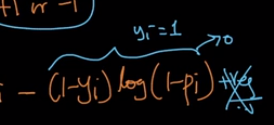 +1 or -1
yi = 1
→0
i - (1-yi) log(1-pi)